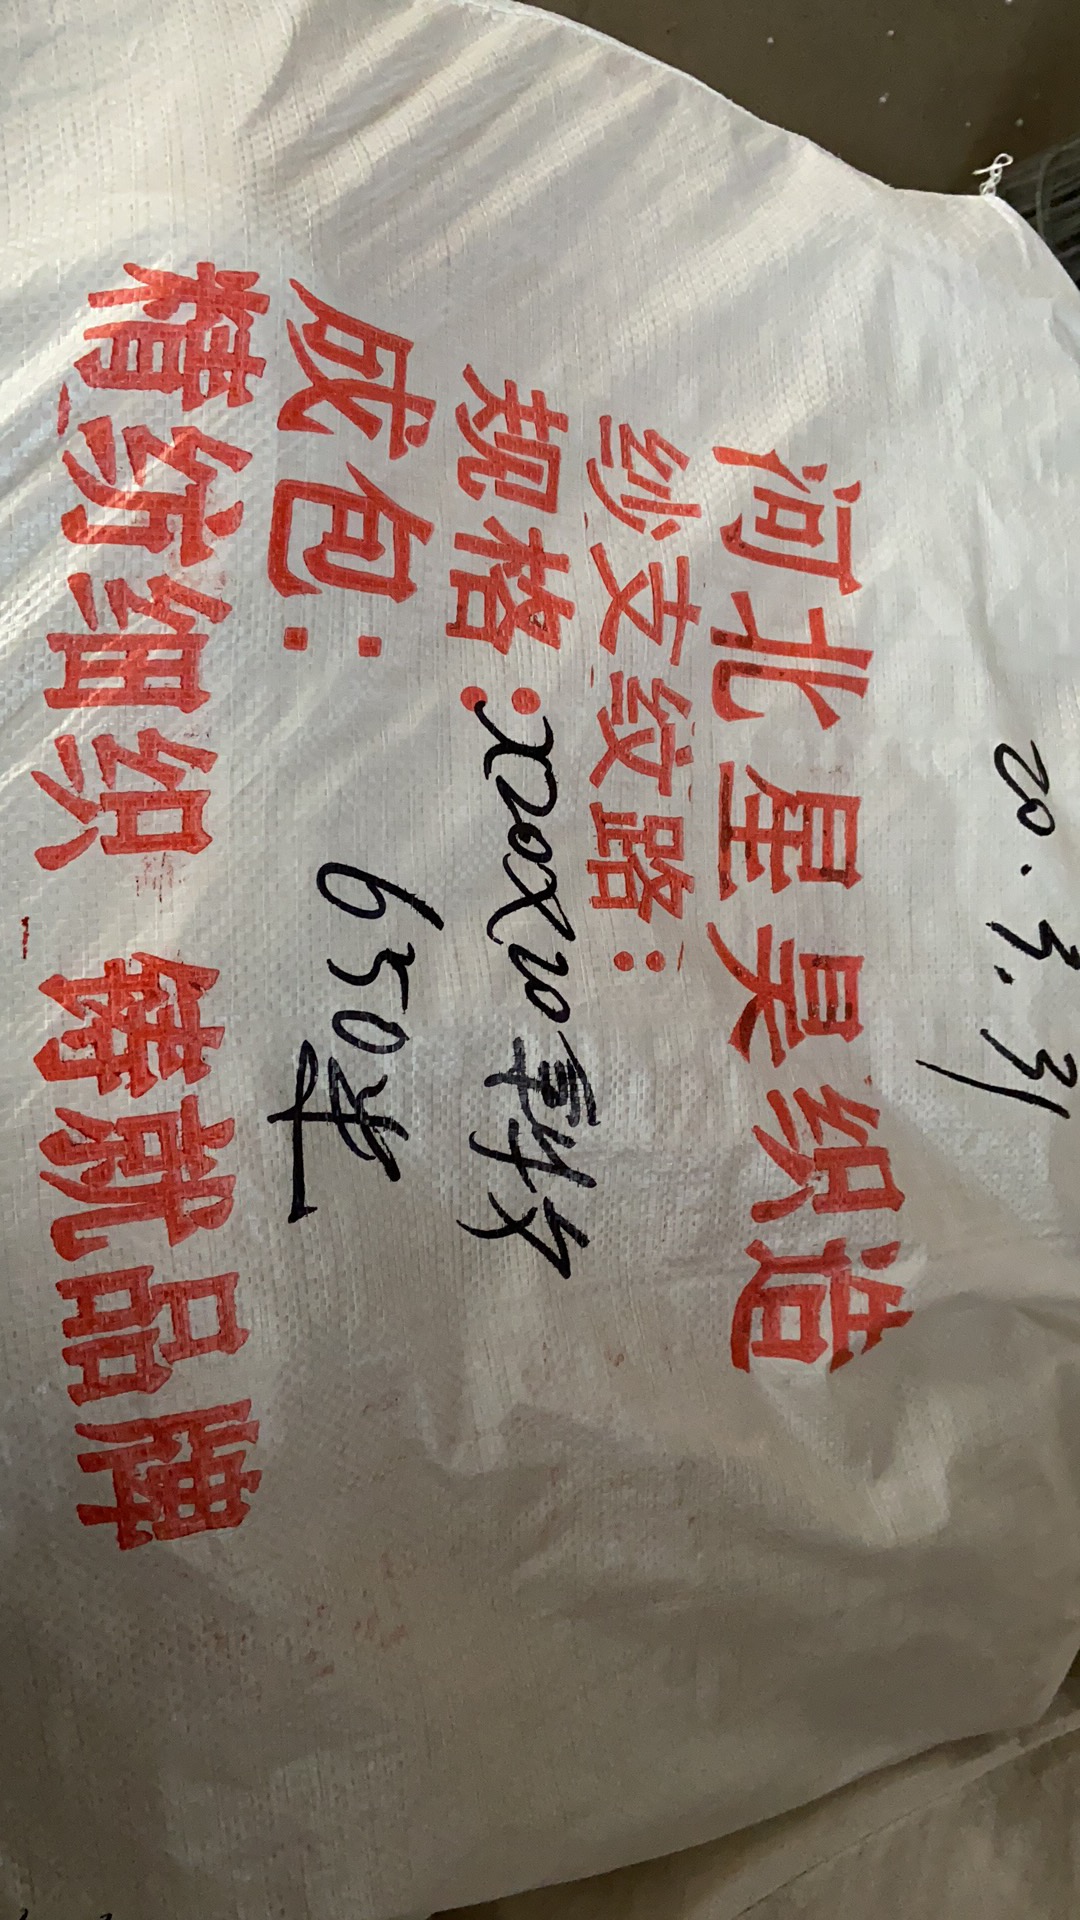 20.3.31
河北星昊织造
纱支纹路：
规格：X20X20
成包：650
精纺细织 铸就品牌